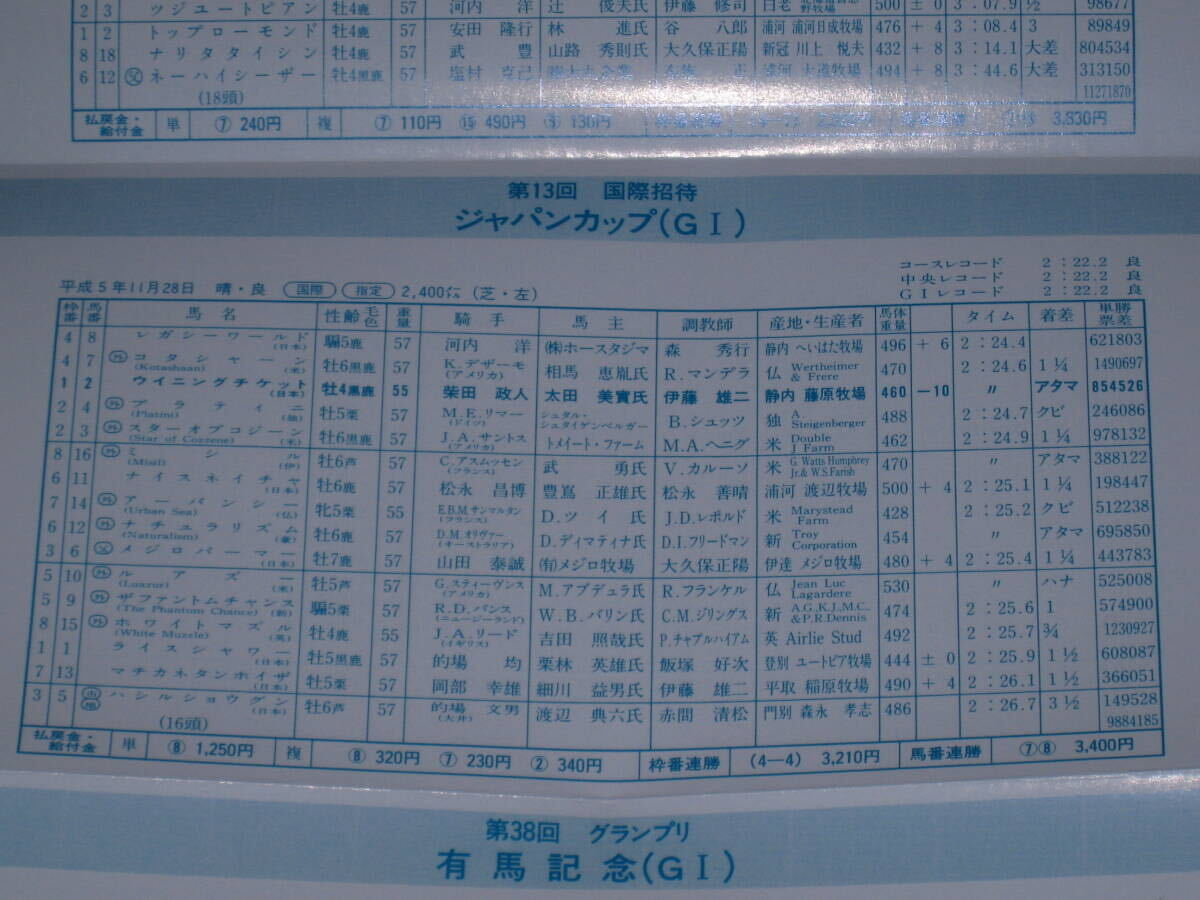 2 3 ツジユートピアン 牡4鹿 57 河内 洋 辻 俊夫氏 伊藤 修司 白老 500 ± 0 3：07.9 ½ 98677
1 2 トップローモンド 牡4鹿 57 安田 隆行 林 進氏 谷 八郎 浦河 浦河日成牧場 476 + 4 3：08.4 3 89849
8 18 ナリタタイシン 牡4鹿 57 武 豊 山路 秀則氏 大久保正陽 新冠 川上 悦夫 432 + 8 3：14.1 大差 804534
6 12 父 ネーハイシーザー 牡4黒鹿 57 塩村 克己 正 浦河 大道牧場 494 + 8 3：44.6 大差 313150
(18頭) 11271870
払戻金・給付金 単 ⑦ 240円 複 ⑦ 110円 ⑮ 490円 130円 3,830円
第13回 国際招待
ジャパンカップ(GⅠ)
コースレコード 2：22.2 良
中央レコード 2：22.2 良
GⅠレコード 2：22.2 良
平成5年11月28日 晴・良 国際 指定 2,400㍍ (芝・左)
枠番 馬番 馬名 性齢 毛色 重量 騎手 馬主 調教師 産地・生産者 馬体重量 タイム 着差 単勝票差
4 8 レガシーワールド (日本) 騸5鹿 57 河内 洋 ㈱ホースタジマ 森 秀行 静内 へいはた牧場 496 + 6 2：24.4 621803
4 7 外 コタシャーン (Kotashaan) (米) 牡6黒鹿 57 K.デザーモ (アメリカ) 相馬 恵胤氏 R.マンデラ 仏 Wertheimer & Frere 470 2：24.6 1¼ 1490697
1 2 ウイニングチケット (日本) 牡4黒鹿 55 柴田 政人 太田 美實氏 伊藤 雄二 静内 藤原牧場 460 −10 〃 アタマ 854526
2 4 外 プラティニ (Platini) (独) 牡5栗 57 M.E.リマー (ドイツ) シュタル・シュタイゲンベルガー B.シュッツ 独 A. Steigenberger 488 2：24.7 クビ 246086
2 3 外 スターオブコジーン (Star of Cozzene) (米) 牡6黒鹿 57 J.A.サントス (アメリカ) トメイート・ファーム M.A.ヘニグ 米 Double J Farm 462 2：24.9 1¼ 978132
8 16 外 ミシル (Misil) (伊) 牡6芦 57 C.アスムッセン (フランス) 武 勇氏 V.カルーソ 米 G.Watts Humphrey Jr.& W.S.Farish 470 〃 アタマ 388122
6 11 ナイスネイチャ (日本) 牡6鹿 57 松永 昌博 豊嶌 正雄氏 松永 善晴 浦河 渡辺牧場 500 + 4 2：25.1 1¼ 198447
7 14 外 アーバンシー (Urban Sea) (仏) 牝5栗 55 E.B.M.サンマルタン (フランス) D.ツイ氏 J.D.レボルド 米 Marystead Farm 428 2：25.2 クビ 512238
6 12 外 ナチュラリズム (Naturalism) (豪) 牡6鹿 57 D.M.オリヴァー (オーストラリア) D.ディマティナ氏 D.I.フリードマン 新 Troy Corporation 454 〃 アタマ 695850
3 6 父 メジロパーマー (日本) 牡7鹿 57 山田 泰誠 ㈲メジロ牧場 大久保正陽 伊達 メジロ牧場 480 + 4 2：25.4 1¼ 443783
5 10 外 ルアズー (Luazur) (米) 牡5芦 57 G.スティーヴンス (アメリカ) M.アブデュラ氏 R.フランケル 仏 Jean Luc Lagardere 530 〃 ハナ 525008
5 9 外 ザファントムチャンス (The Phantom Chance) (新) 騸5栗 57 R.D.バンス (ニュージーランド) W.B.バリン氏 C.M.ジリングス 新 A.G.K.J.M.C. & P.R.Dennis 474 2：25.6 1 574900
8 15 外 ホワイトマズル (White Muzzle) (英) 牡4鹿 55 J.A.リード (イギリス) 吉田 照哉氏 P.チャプルハイアム 英 Airlie Stud 492 2：25.7 ¾ 1230927
1 1 ライスシャワー (日本) 牡5黒鹿 57 的場 均 栗林 英雄氏 飯塚 好次 登別 ユートピア牧場 444 ± 0 2：25.9 1½ 608087
7 13 マチカネタンホイザ (日本) 牡5栗 57 岡部 幸雄 細川 益男氏 伊藤 雄二 平取 稲原牧場 490 + 4 2：26.1 1½ 366051
3 5 ハシルショウグン (日本) 牡6芦 57 的場 文男 (大井) 渡辺 典六氏 赤間 清松 門別 森永 孝志 486 2：26.7 3½ 149528
(16頭) 9884185
払戻金・給付金 単 ⑧ 1,250円 複 ⑧ 320円 ⑦ 230円 ② 340円 枠番連勝 (4—4) 3,210円 馬番連勝 ⑦⑧ 3,400円
第38回 グランプリ
有馬記念(GⅠ)